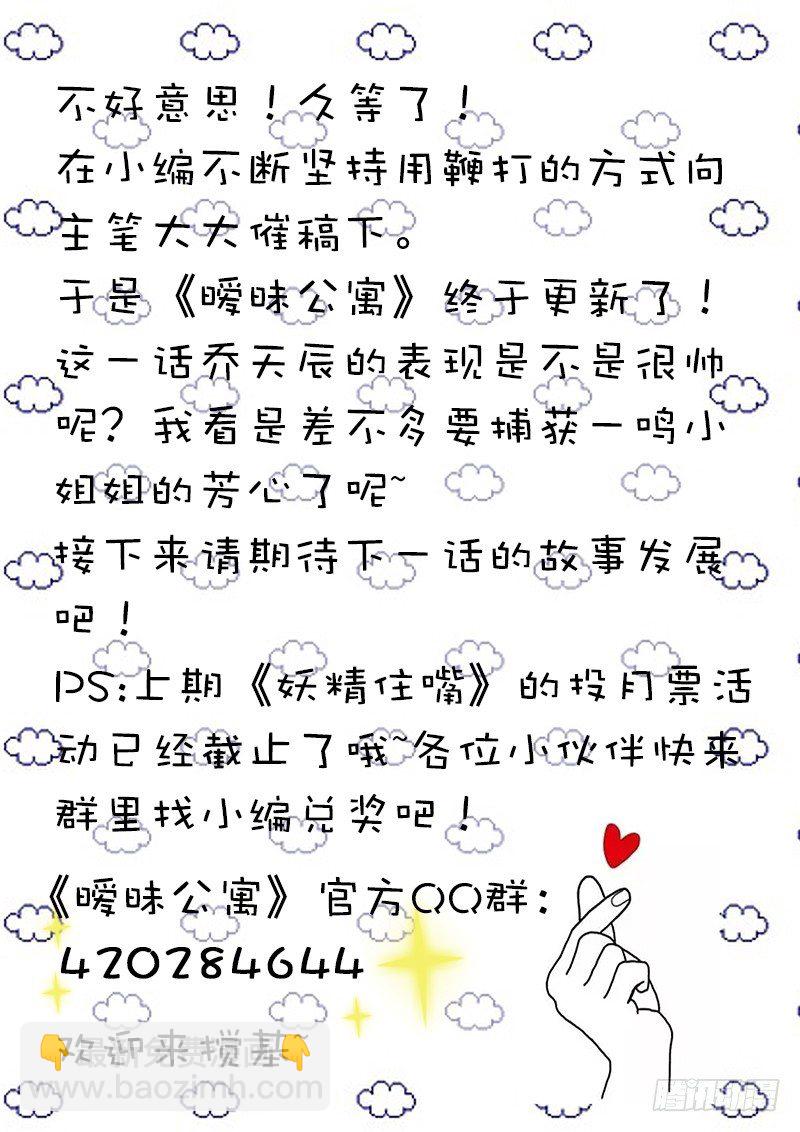 不好意思！久等了！
在小编不断坚持用鞭打的方式向
主笔大大催稿下。
于是《暧昧公寓》终于更新了！
这一话乔天辰的表现是不是很帅
呢？我看是差不多要捕获一鸣小
姐姐的芳心了呢~
接下来请期待下一话的故事发展
吧！
PS:上期《妖精住嘴》的投月票活
动已经截止了哦~各位小伙伴快来
群里找小编兑奖吧！
《暧昧公寓》官方QQ群：
420284644
欢迎来搅基~
最新免费漫画
www.baozimh.com
腾讯动漫